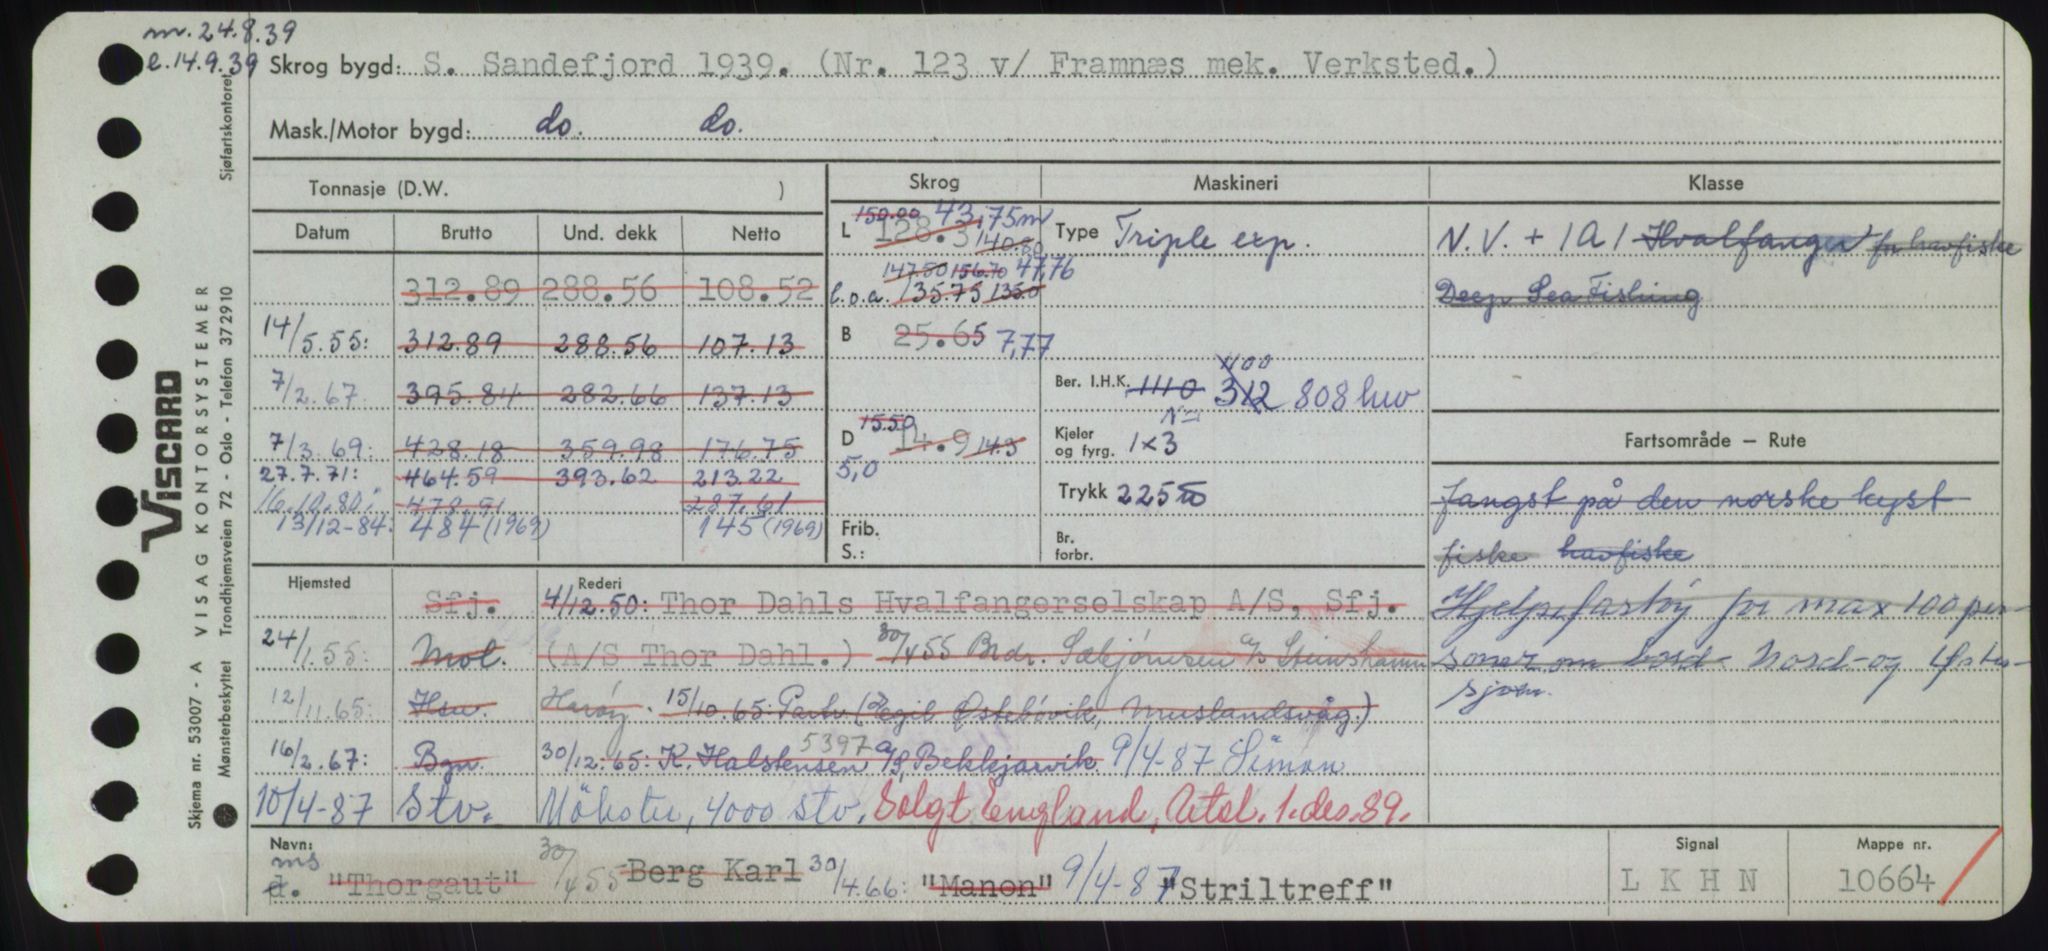 m. 24.8.39
e. 14.9.39
Skrog bygd: S. Sandefjord 1939. (Nr. 123 v/ Framnæs mek. Verksted.)
Mask./Motor bygd: do. do.
Tonnasje (D.W. )
Skrog Maskineri Klasse
Datum Brutto Und. dekk Netto
L 150.00 128.3 140.80 43,75m
Type Triple exp.
N.V. + 1A1 Hvalfanger for havfiske
Deep Sea Fishing
312.89 288.56 108.52
l.o.a. 147.50 156.70 47,76 135.75 135.0
14/5.55: 312.89 288.56 107.13
B 25.65 7,77
7/2.67. 395.84 282.66 137.13
Ber. I.H.K. 1110 1100 312 808 hw
N=
7/3.69: 428.18 359.98 176.75
D 15.50 14.9 14.3
5,0
Kjeler og fyrg. 1x3
Fartsområde – Rute
27.7.71: 464.59 393.62 213.22
16.10.80: 478.91 287.61
Trykk 225
fangst på den norske kyst
13/12-84: 484 (1969) 145 (1969)
Frib. S.:
Br. forbr.
fiske havfiske
Hjemsted Rederi
Sfj. 4/12.50: Thor Dahls Hvalfangerselskap A/S, Sfj.
Hjelpefartøy for max 100 per-
24/1.55: Mol. (A/S Thor Dahl.) 30/455 Brdr. Sæbjörnsen A/S Steinshamn
soner om bord. Nord- og Øster-
sjøen.
12/11.65: Hsu. Harøy. 15/10.65: Partr (Egil Østebövik, Muslandsvåg.)
16/2.67: Bgn. 30/12.65: K. Halstensen A/S, Bekkjarvik. 5397 9/4-87 Simon
10/4-87 Stv. Mökster, 4000 Stv. Solgt England, Utsl. 1.des.89.
Navn: Signal Mappe nr.
ms
d. "Thorgaut" 30/455 Berg Karl 30/4.66: "Manon" 9/4-87 "Striltreff" LKHN 10664
Skjema nr. 53007 - A VISAG KONTORSYSTEMER
VISCARD
Mønsterbeskyttet Trondhjemsveien 72 - Oslo - Telefon 37 29 10 Sjøfartskontoret